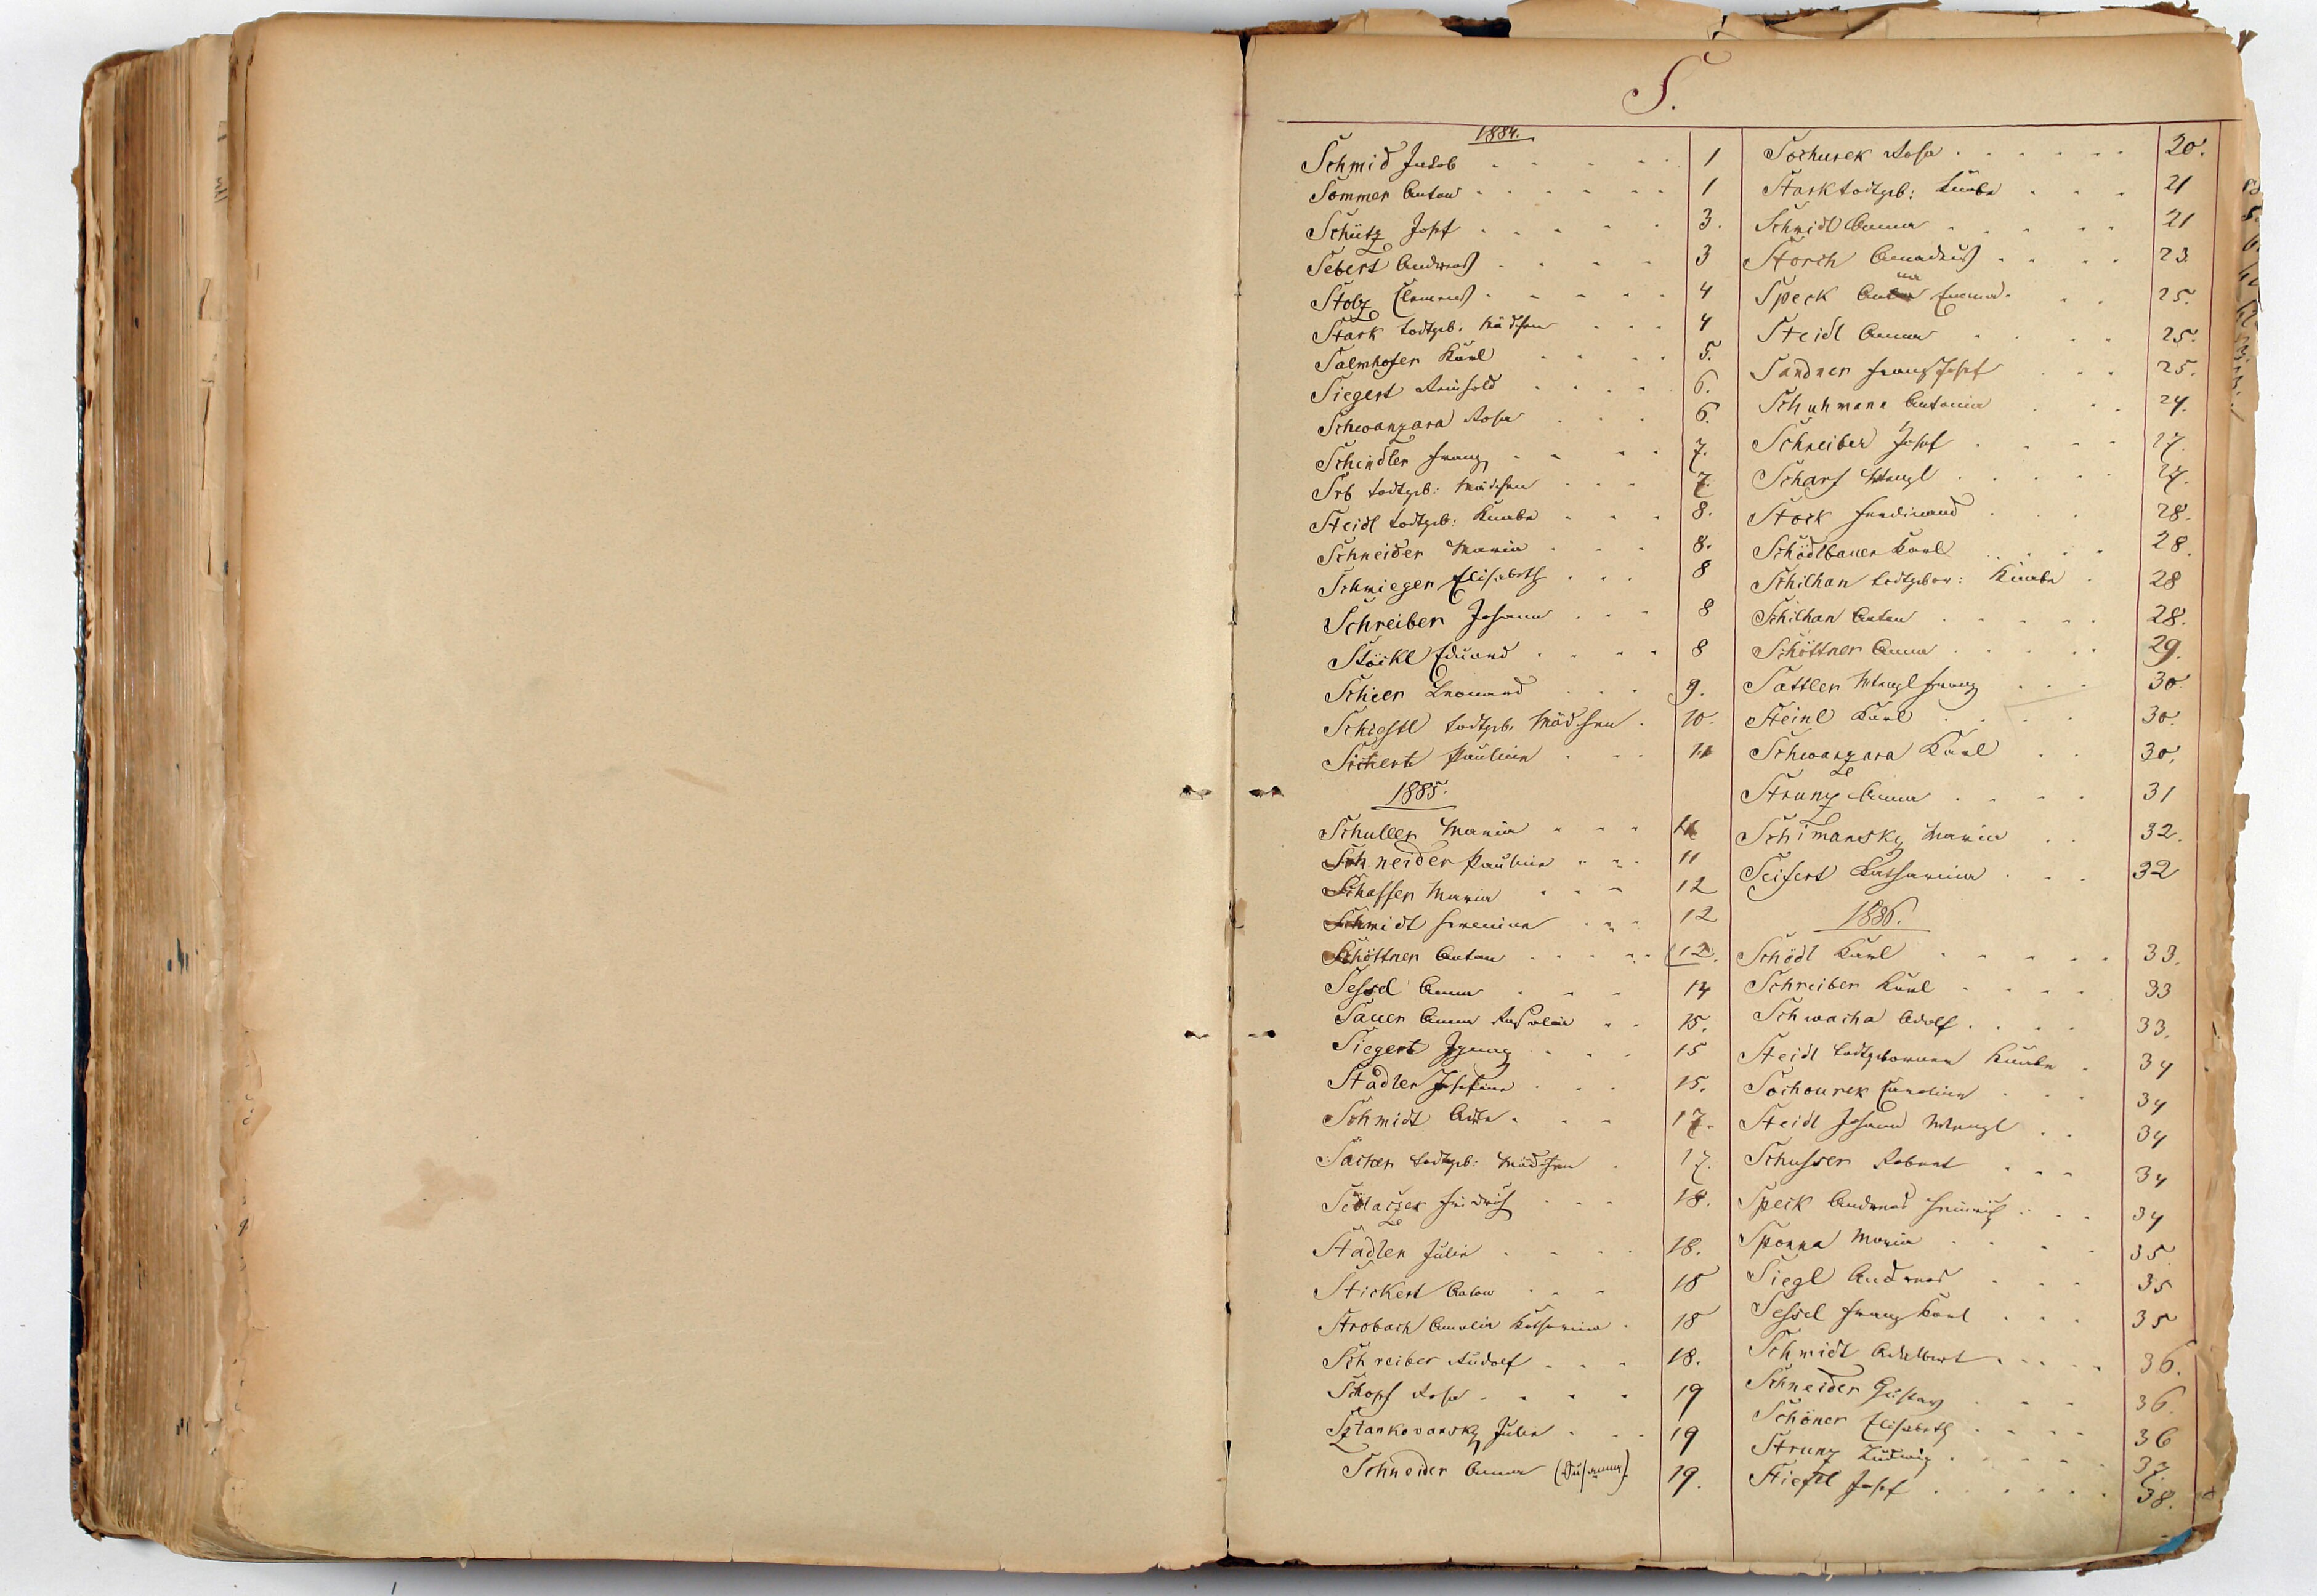 S.
1884.
Schmid Jakob 1
Sommer Anton 1
Schütz Josef 3.
Sebert Andreas 3
Stolz Clemens 4
Stark todtgeb. Mädchen 4
Salmhofer Karl 5.
Siegert Reinhold 6.
Schwanzara Rosa 6.
Schindler Franz 7.
Srb todtgeb: Mädchen 7.
Steidl todtgeb: Knabe 8.
Schneider Maria 8.
Schmieger Elisabeth 8
Schreiber Johann 8
Stöckl Eduard 8
Scheer Leonard 9.
Schiestl todtgeb. Mädchen 10.
Sichert Paulina 11
1885.
Schuller Maria 11
Schneider Paulina 11
Schaffer Maria 12
Schmidt 12
Schöttner Anton 12.
Sessel Anna 14
Sauer Anna Rosalia 15.
Siegert Ignaz 15
Stadler Josefine 15.
Schmidt 17.
Sacher todtgeb: Mädchen 17.
Sedlaczek Friedrich 18.
Stadler Julia 18.
Stickert Anton 18
Strobach Amalia Katharina 18
Schreiber Rudolf 18.
Schopf Rosa 19
Sztankovansky Julia 19
Schneider Anna (Susanna) 19.
Sochurek Rosa 20.
Stark todtgeb: Knabe 21
Schmidl Anna 21
Storch Amadeus 23.
Speck Anna Emma 25.
Steidl Anna 25.
Sandner Franz Josef 25.
Schuhmann Antonia 27.
Schreiber Josef 27.
Scharf Wenzl 27.
Stock Ferdinand 28.
Schödlbauer Karl 28.
Schilhan todtgebor: Knabe 28
Schilhan Anton 28.
Schöttner Anna 29.
Sattler Wenzl Franz 30.
Steinl Karl 30.
Schwanzara Karl 30.
Strunz Anna 31
Schimansky Maria 32.
Seifert Katharina 32
1886.
Schödl Karl 33.
Schreiber Karl 33
Schwacha Adolf 33.
Steidl todtgeborener Knabe 34
Sochourek Carolina 34
Steidl Johann Wenzl 34
Schusser Robert 34
Speck Andreas Heinrich 34
Sponna Maria 35
Siegl Andreas 35
Sessel Franz Karl 35
Schmidt Adalbert 36.
Schneider Gustav 36.
Schöner Elisabeth 36
Strunz Ludwig 37.
Stiefl Josef 38.